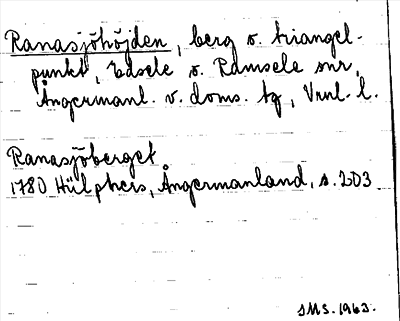 Ranasjöhöjden, berg o. triangel-
punkt, Edsele o. Ramsele snr,
Ångermanl. v. doms. tg, Vnrl. l.
Ranasjöberget
1780 Hülphers, Ångermanland, s. 203.
SMS. 1963.